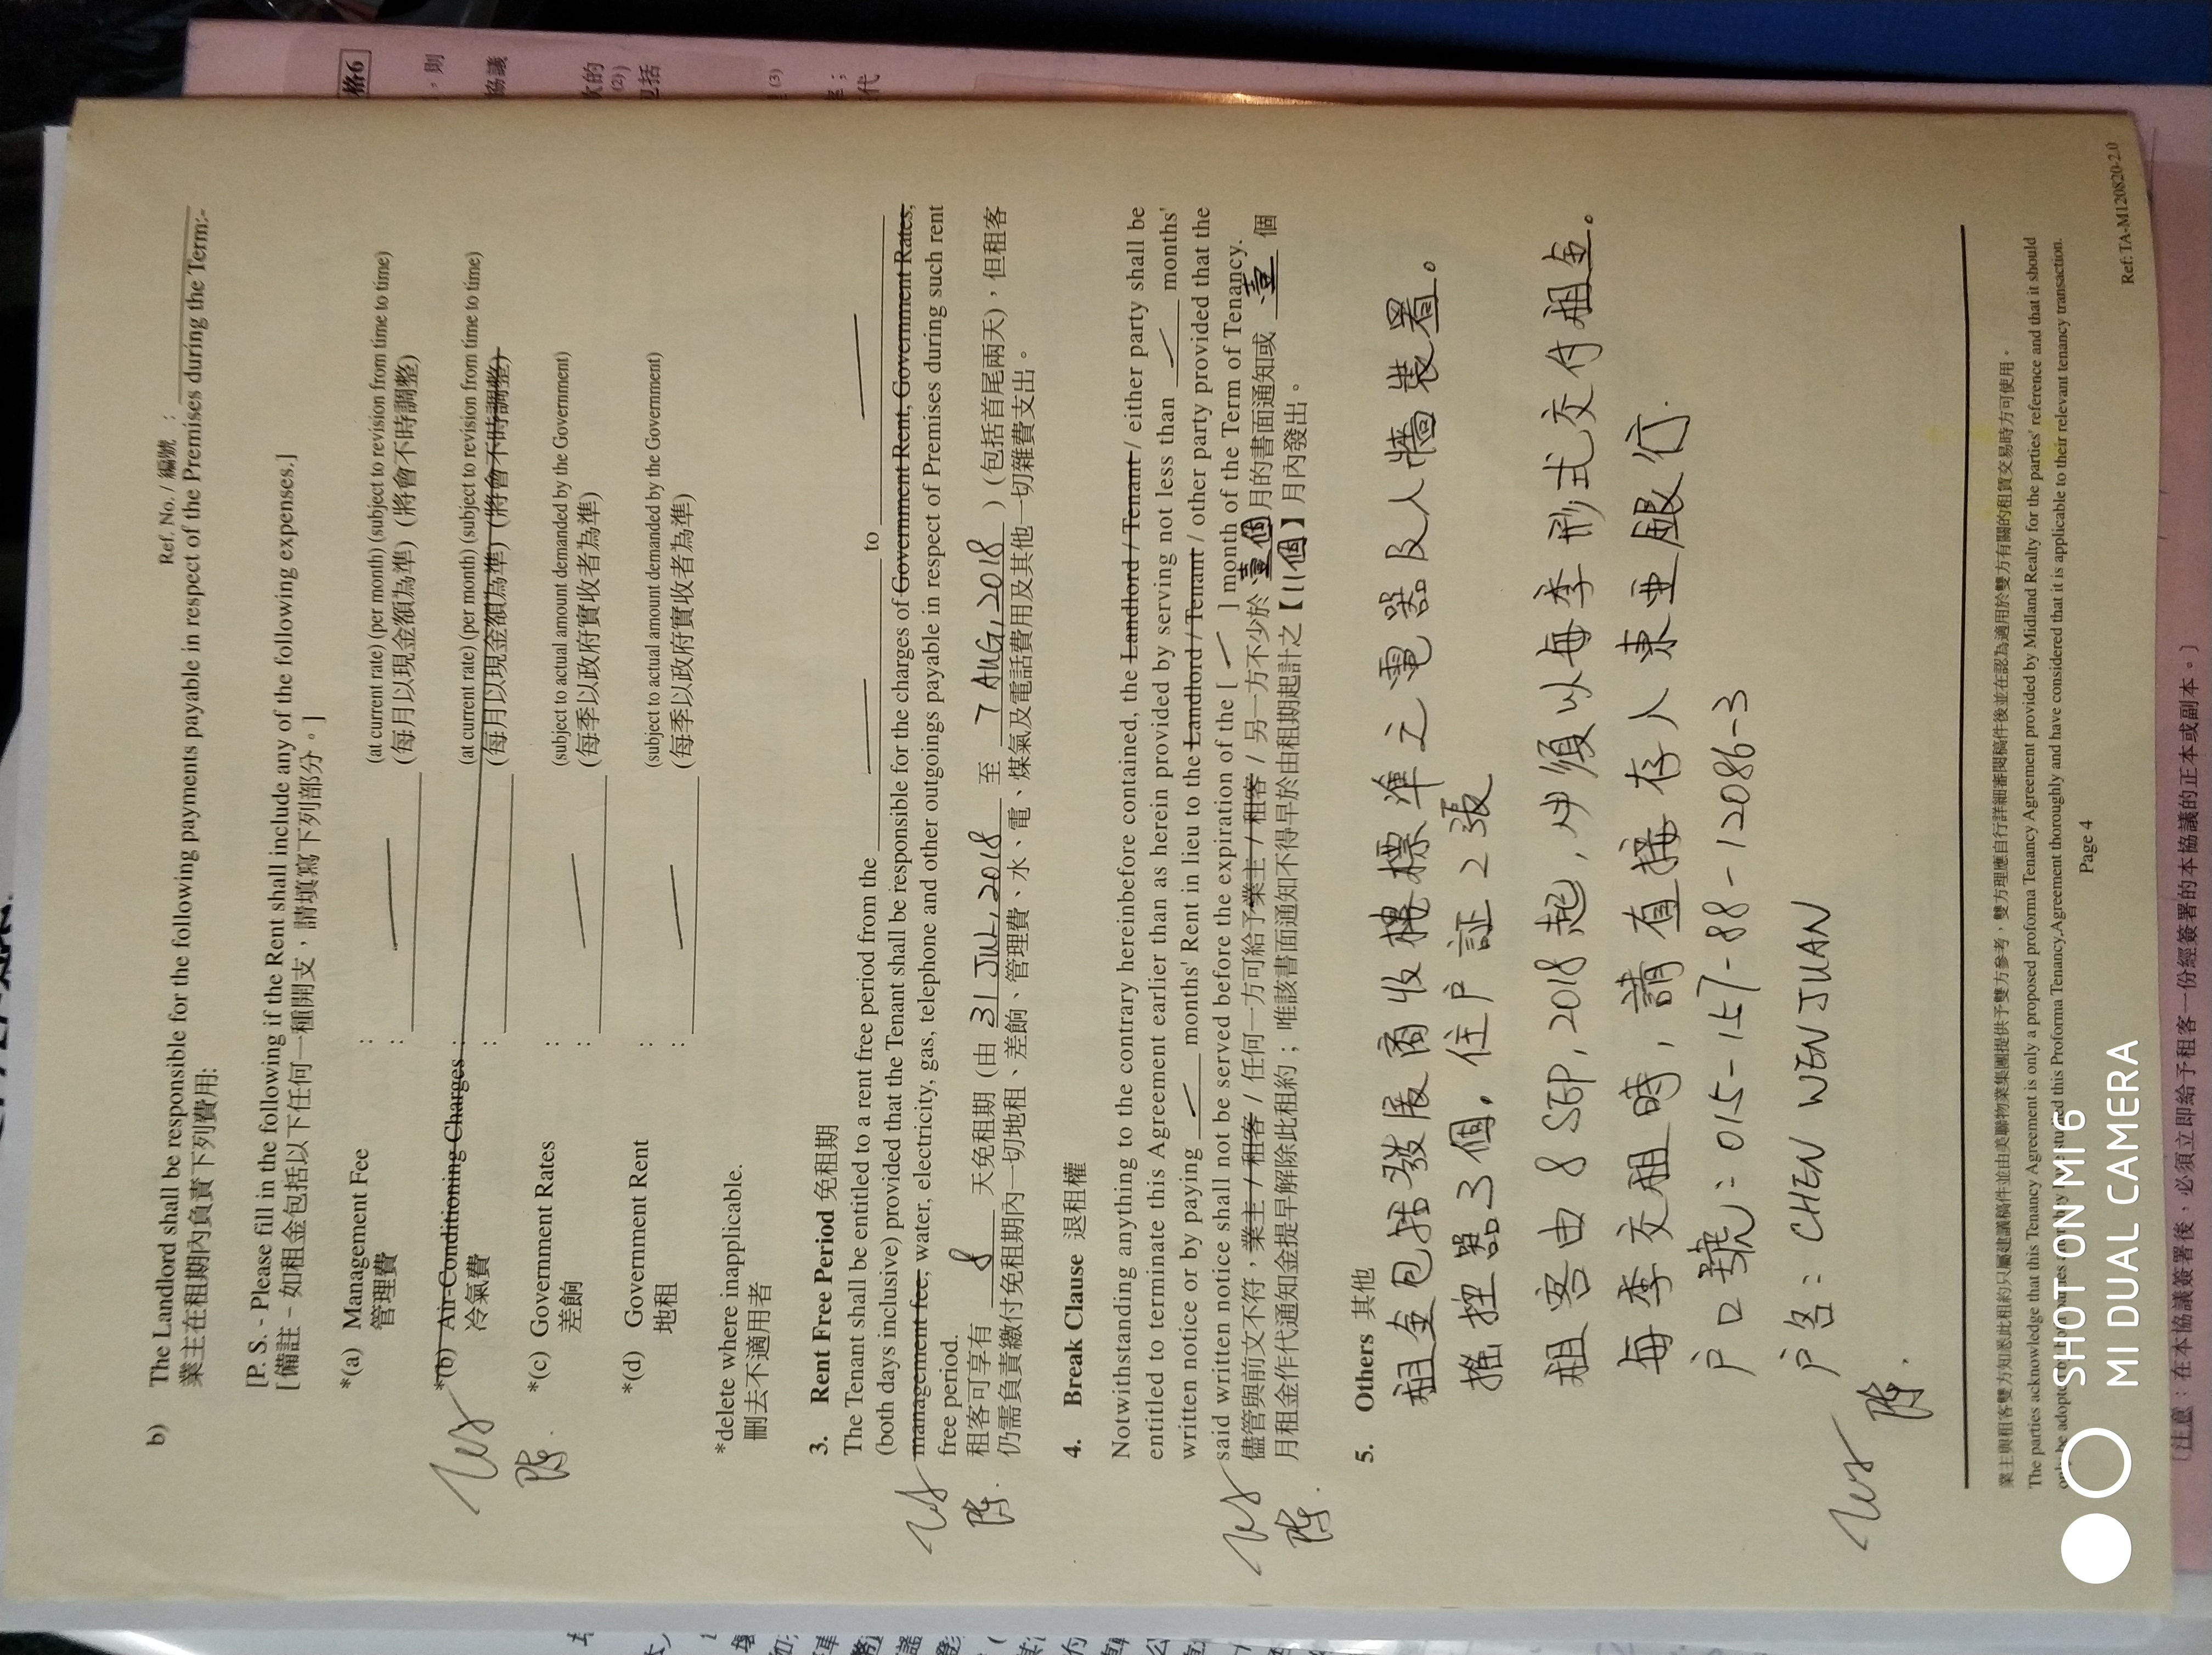 Ref. No. / 編號 :
b) The Landlord shall be responsible for the following payments payable in respect of the Premises during the Term:-
業主在租期內負責下列費用:
[P. S. - Please fill in the following if the Rent shall include any of the following expenses.]
[備註 - 如租金包括以下任何一種開支，請填寫下列部分。]
*(a) Management Fee : (at current rate) (per month) (subject to revision from time to time)
管理費 : (每月以現金額為準) (將會不時調整)
*(b) Air-Conditioning Charges : (at current rate) (per month) (subject to revision from time to time)
冷氣費 : (每月以現金額為準) (將會不時調整)
*(c) Government Rates : (subject to actual amount demanded by the Government)
差餉 : (每季以政府實收者為準)
*(d) Government Rent : (subject to actual amount demanded by the Government)
地租 : (每季以政府實收者為準)
*delete where inapplicable.
刪去不適用者
3. Rent Free Period 免租期
The Tenant shall be entitled to a rent free period from the to
(both days inclusive) provided that the Tenant shall be responsible for the charges of Government Rent, Government Rates,
management fee, water, electricity, gas, telephone and other outgoings payable in respect of Premises during such rent
free period.
租客可享有 8 天免租期 (由 31 JUL, 2018 至 7 AUG, 2018 ) (包括首尾兩天)，但租客
仍需負責繳付免租期內一切地租、差餉、管理費、水、電、煤氣及電話費用及其他一切雜費支出。
4. Break Clause 退租權
Notwithstanding anything to the contrary hereinbefore contained, the Landlord / Tenant / either party shall be
entitled to terminate this Agreement earlier than as herein provided by serving not less than months'
written notice or by paying months' Rent in lieu to the Landlord / Tenant / other party provided that the
said written notice shall not be served before the expiration of the [ ] month of the Term of Tenancy.
儘管與前文不符，業主 / 租客 / 任何一方可給予業主 / 租客 / 另一方不少於 壹個 月的書面通知或 壹 個
月租金作代通知金提早解除此租約；唯該書面通知不得早於由租期起計之【11個】月內發出。
5. Others 其他
租金包括發展商收樓標準之電器及人牆裝置。
搖控器3個，住戶証2張
租客由 8 SEP, 2018 起，必須以每季形式交付租金。
每季交租時，請直接存入東亞銀行.
户口號：015-157-88-12086-3
户名：CHEN WENJUAN
業主與租客雙方知悉此租約只屬建議稿件並由美聯物業集團提供予雙方參考，雙方理應自行詳細審閱稿件後並在認為適用於雙方有關的租賃交易時方可使用。
The parties acknowledge that this Tenancy Agreement is only a proposed proforma Tenancy Agreement provided by Midland Realty for the parties' reference and that it should
only be adopted this Proforma Tenancy Agreement thoroughly and have considered that it is applicable to their relevant tenancy transaction.
Page 4
Ref: TA-M120820-2.0
(注意：在本協議簽署後，必須立即給予租客一份經簽署的本協議的正本或副本。)
格6
SHOT ON MI 6
MI DUAL CAMERA